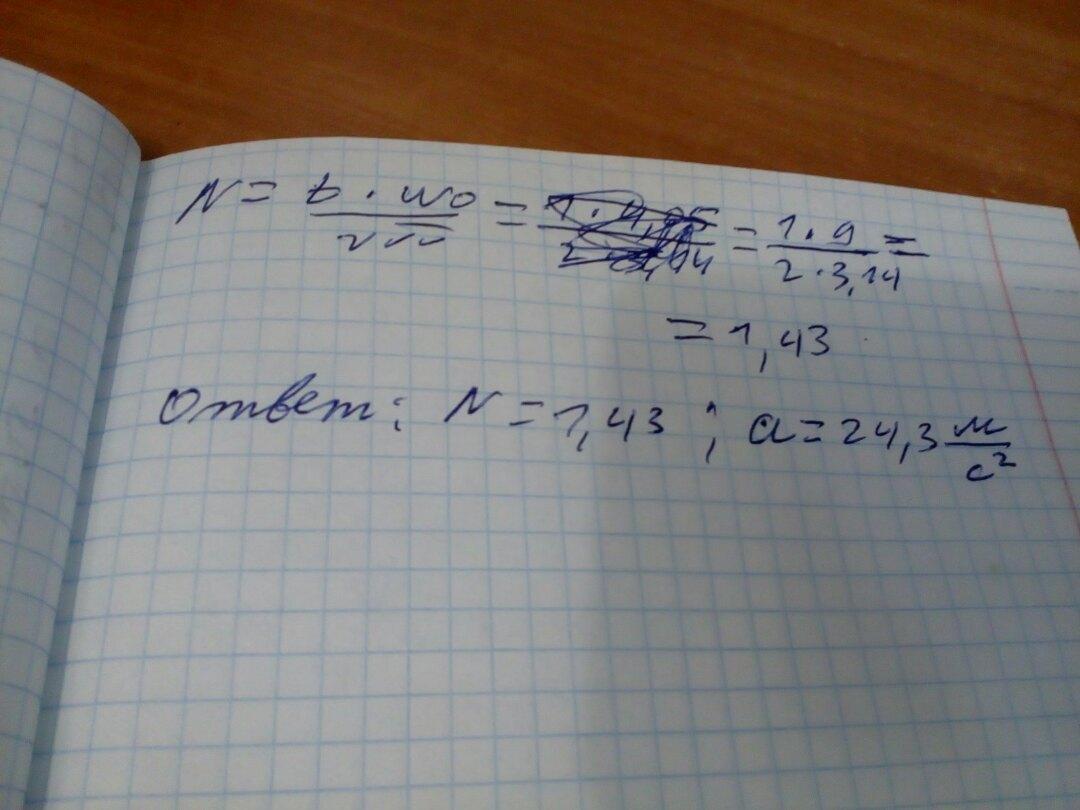 N = t · ω0 / 2π = 1 · 9 / 2 · 3,14 =
= 1,43
Ответ: N = 1,43 ; a = 24,3 м/с²